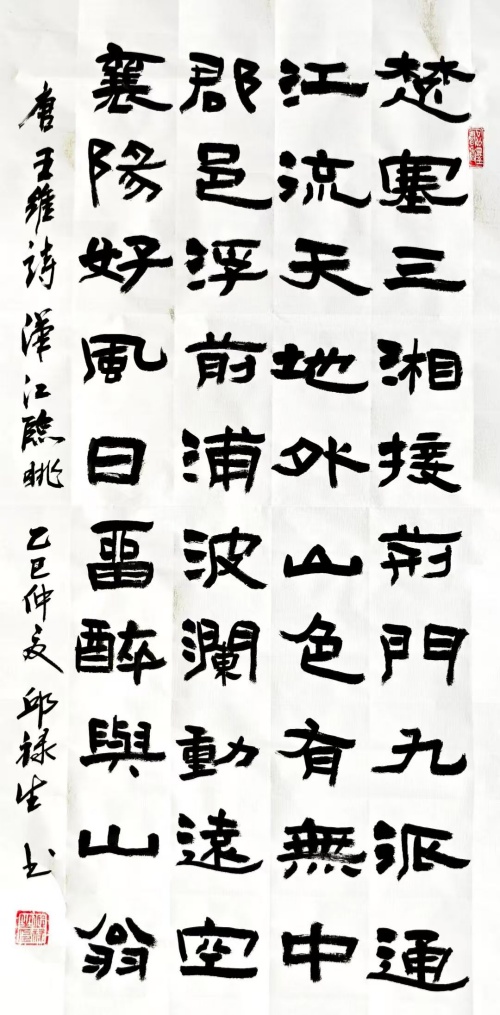 楚塞三湘接荆門九派通
江流天地外山色有無中
郡邑浮前浦波瀾動遠空
襄陽好風日畱醉與山翁
唐王維詩漢江臨眺 乙巳仲夏邱禄生书